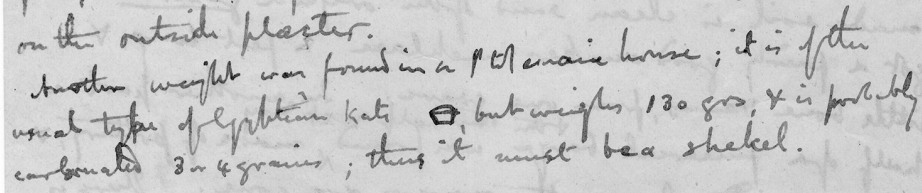 on the outside plaster.
Another weight was found in a Ptolemaic house; it is of the
usual type of Egyptian Kats , but weighs 130 grs, & is probably
carbonated 3 or 4 grains; thus it must be a shekel.